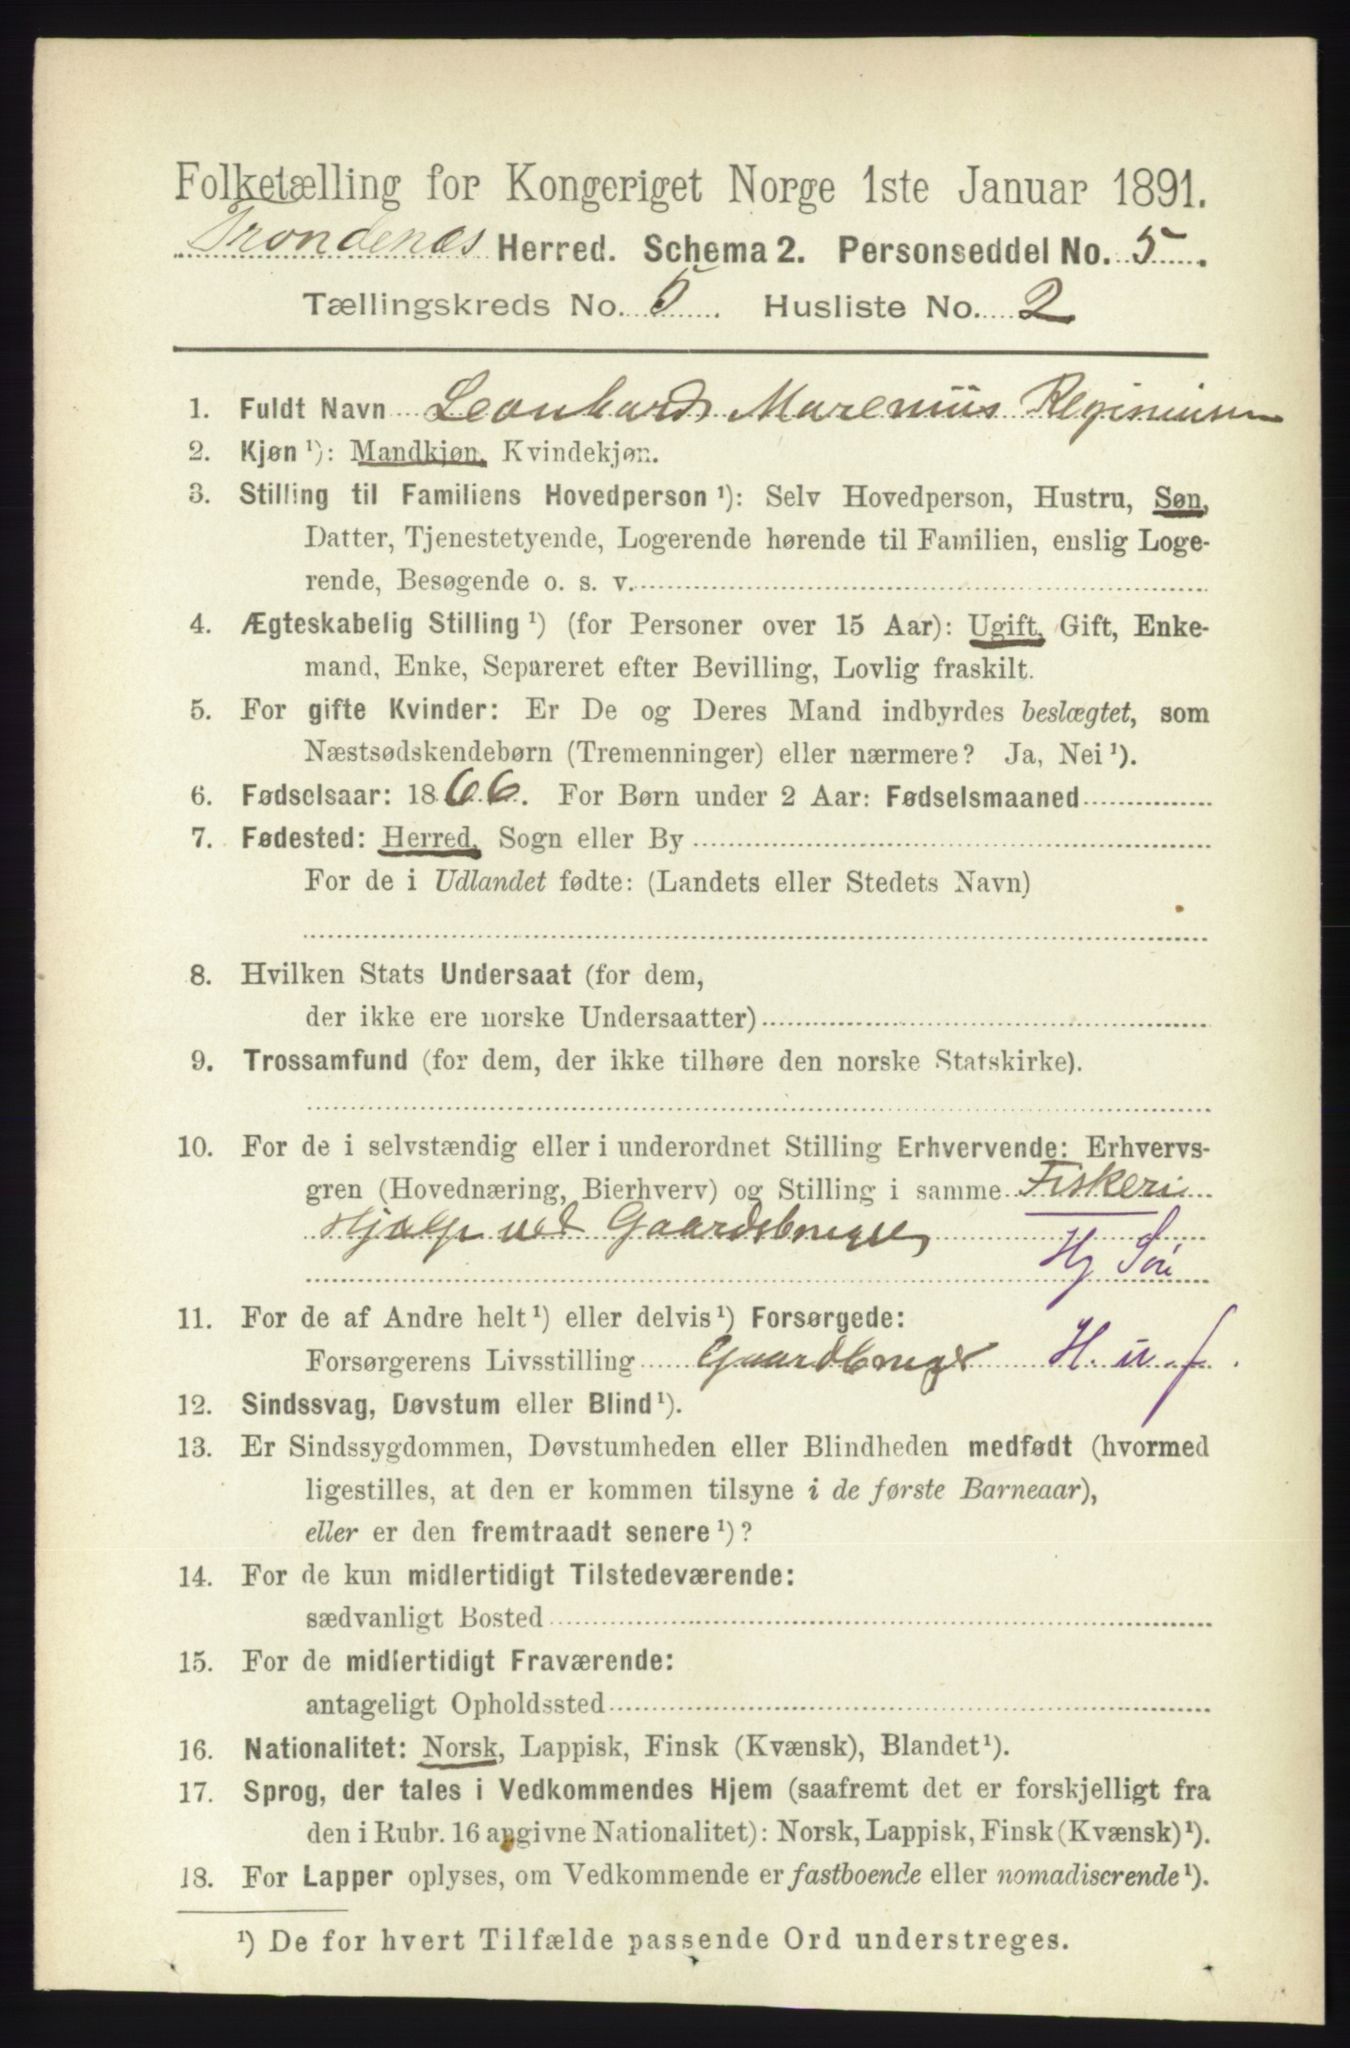 Folketælling for Kongeriget Norge 1ste Januar 1891.
Trondenæs Herred. Schema 2. Personseddel No. 5
Tællingskreds No. 5 Husliste No. 2
1. Fuldt Navn Leonhard Marenius
2. Kjøn ¹): Mandkjøn, Kvindekjøn.
3. Stilling til Familiens Hovedperson ¹): Selv Hovedperson, Hustru, Søn,
Datter, Tjenestetyende, Logerende hørende til Familien, enslig Loge-
rende, Besøgende o. s. v.
4. Ægteskabelig Stilling ¹) (for Personer over 15 Aar): Ugift, Gift, Enke-
mand, Enke, Separeret efter Bevilling, Lovlig fraskilt.
5. For gifte Kvinder: Er De og Deres Mand indbyrdes beslægtet, som
Næstsødskendebørn (Tremenninger) eller nærmere? Ja, Nei ¹).
6. Fødselsaar: 1866. For Børn under 2 Aar: Fødselsmaaned
7. Fødested: Herred, Sogn eller By
For de i Udlandet fødte: (Landets eller Stedets Navn)
8. Hvilken Stats Undersaat (for dem,
der ikke ere norske Undersaatter)
9. Trossamfund (for dem, der ikke tilhøre den norske Statskirke).
10. For de i selvstændig eller i underordnet Stilling Erhvervende: Erhvervs-
gren (Hovednæring, Bierhverv) og Stilling i samme Fiskeri
Hjælp ved Gaardsbruget
Hg Søn
11. For de af Andre helt ¹) eller delvis ¹) Forsørgede:
Forsørgerens Livsstilling Gaardbruger H. u. f.
12. Sindssvag, Døvstum eller Blind ¹).
13. Er Sindssygdommen, Døvstumheden eller Blindheden medfødt (hvormed
ligestilles, at den er kommen tilsyne i de første Barneaar),
eller er den fremtraadt senere ¹)?
14. For de kun midlertidigt Tilstedeværende:
sædvanligt Bosted
15. For de midlertidigt Fraværende:
antageligt Opholdssted
16. Nationalitet: Norsk, Lappisk, Finsk (Kvænsk), Blandet ¹).
17. Sprog, der tales i Vedkommendes Hjem (saafremt det er forskjelligt fra
den i Rubr. 16 angivne Nationalitet): Norsk, Lappisk, Finsk (Kvænsk) ¹).
18. For Lapper oplyses, om Vedkommende er fastboende eller nomadiserende ¹).
¹) De for hvert Tilfælde passende Ord understreges.